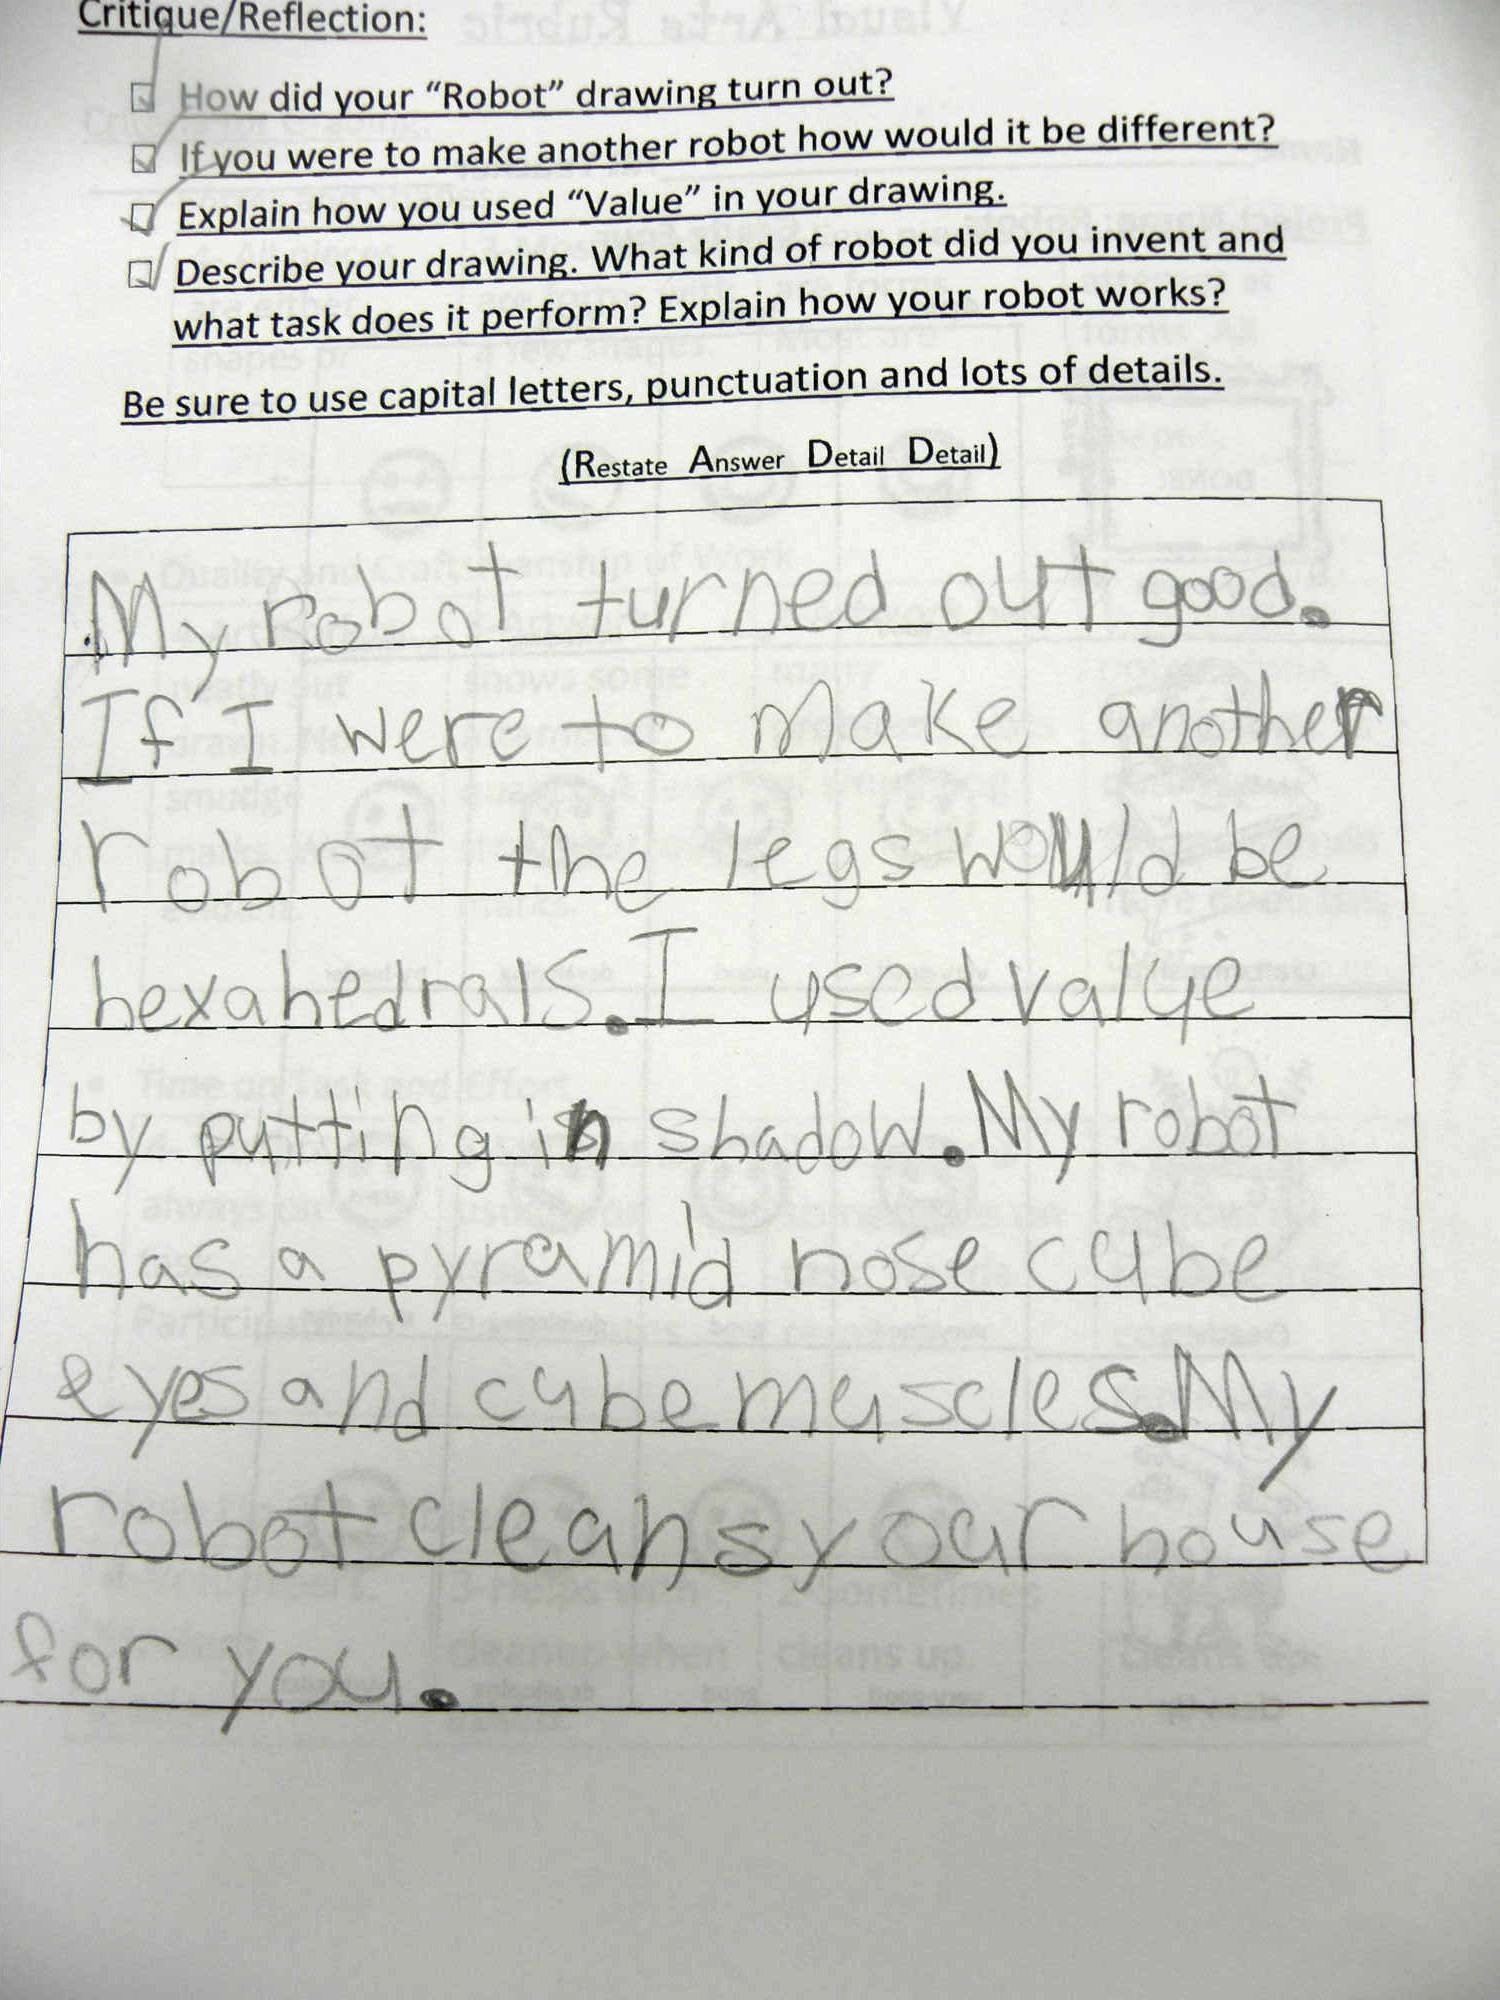 Critique/Reflection:
How did your “Robot” drawing turn out?
If you were to make another robot how would it be different?
Explain how you used “Value” in your drawing.
Describe your drawing. What kind of robot did you invent and
what task does it perform? Explain how your robot works?
Be sure to use capital letters, punctuation and lots of details.
(Restate Answer Detail Detail)
My robot turned out good.
If I were to make another
robot the legs would be
hexahedrals. I used value
by putting in shadow. My robot
has a pyramid nose cube
eyes and cube muscles. My
robot cleans your house
for you.